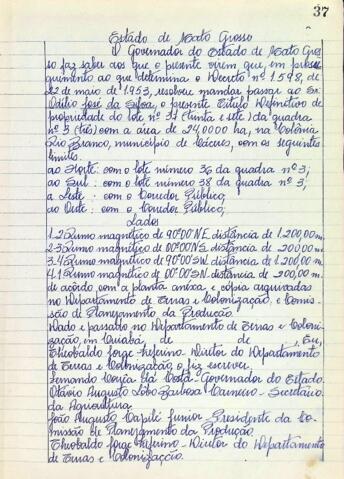 37
Estado de Mato Grosso
O Governador do Estado de Mato Gros
so faz saber aos que o presente virem que, em prosse
guimento ao que determina o Decreto nº 1.598, de
22 de maio de 1953, resolveu mandar passar ao Sr.
Odilio José da Silva, o presente Título Definitivo de
propriedade do lote nº 37 (trinta e sete) da quadra
nº 3 (três) com a área de 24,0000 ha, na Colônia
Rio Branco, município de Cáceres, com os seguintes
limites:
ao Norte: com o lote número 36 da quadra nº 3;
ao Sul: com o lote número 38 da quadra nº 3;
a Leste: com o Corredor Público;
ao Oeste: com o Corredor Público;
Lados
1.2 Rumo magnético de 90º00'NE. distância de 1.200,00 m.
2.3 Rumo magnético de 00º00'NS. distância de 200,00 m.
3.4 Rumo magnético de 90º00'SW. distância de 1.200,00 m.
4.1 Rumo magnético de 00º00'SN. distância de 200,00 m.
de acôrdo com a planta anexa e cópia arquivadas
no Departamento de Terras e Colonização, e Comis-
são de Planejamento da Produção.
Dado e passado no Departamento de Terras e Coloni-
zação, em Cuiabá, de de . Eu,
Theobaldo Jorge - Diretor do Departamento
de Terras e Colonização, o fiz escrever.
Fernando Corrêa da Costa - Governador do Estado.
Otávio Augusto Lobo Barbosa Carneiro - Secretário
da Agricultura
João Augusto Capilé Junior - Presidente da Co-
missão de Planejamento da Produção
Theobaldo Jorge - Diretor do Departamento
de Terras e Colonização.